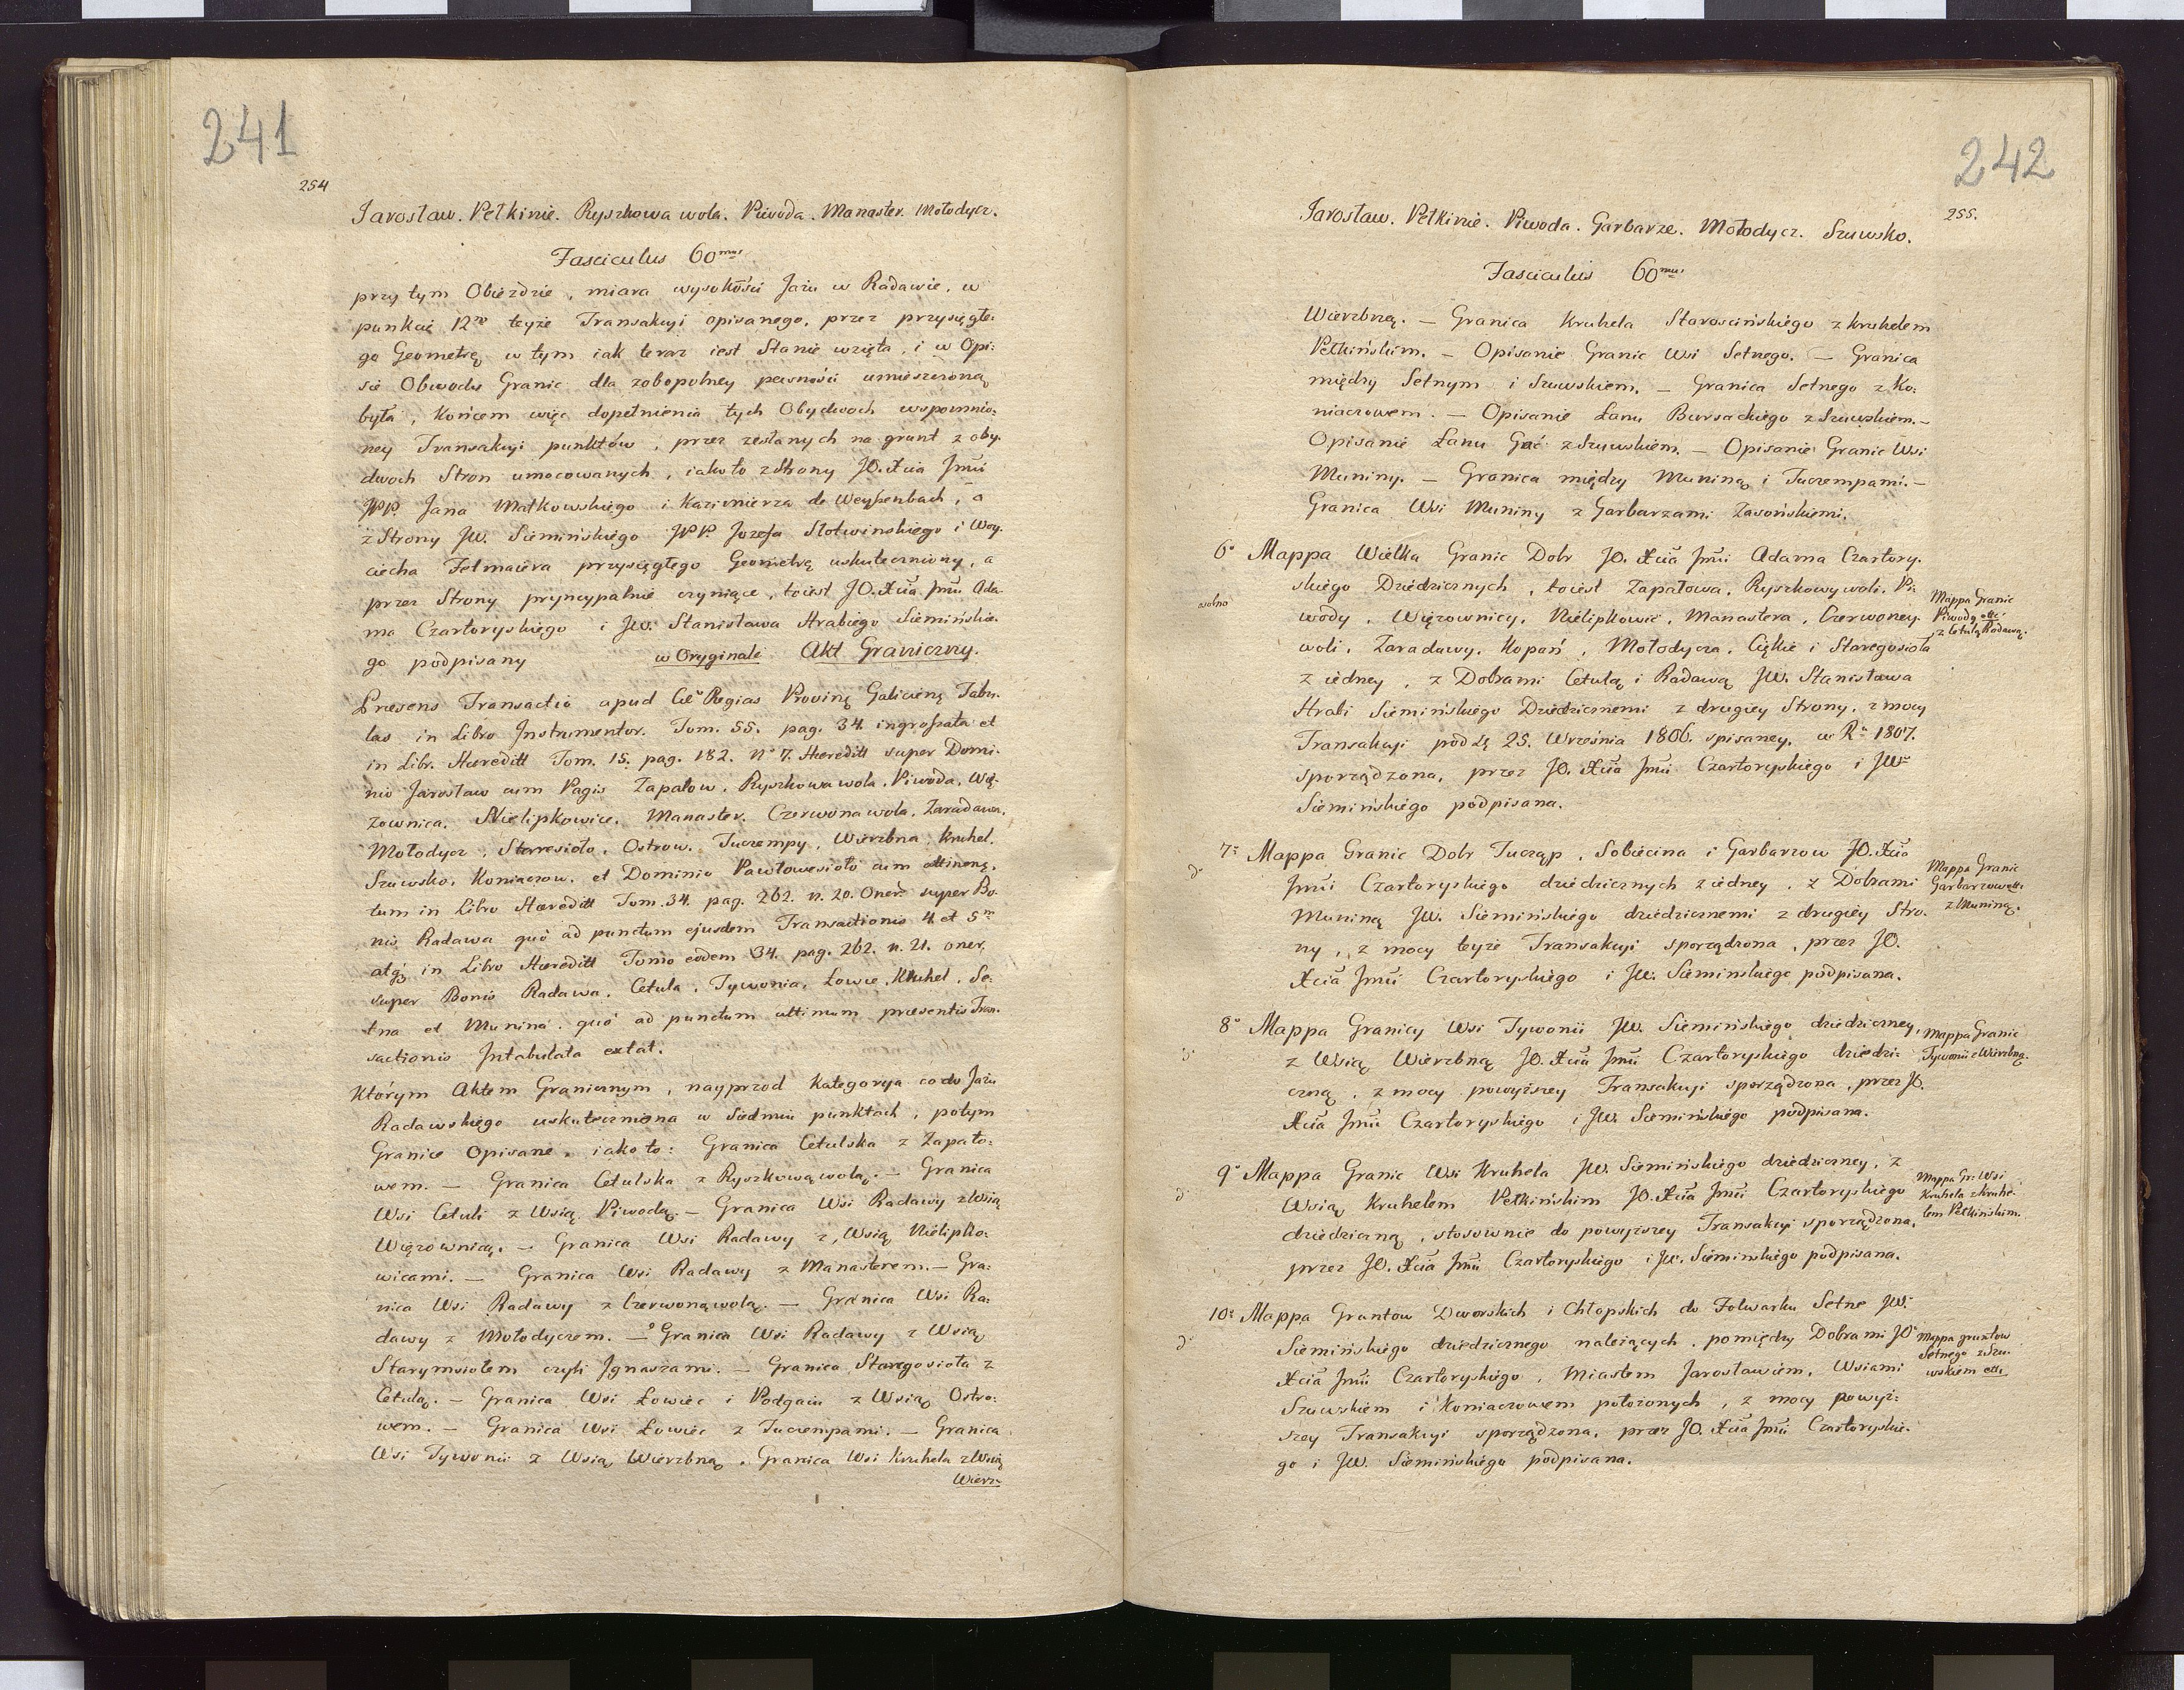 241
254
Jarosław. Pełkinie. Ryszkowa wola. Piwoda. Manaster. Mołodycz.
Fasciculus 60mus
przy tym Obieździe, miara wysokości Jazu w Radawie, w
punkcie 12mo teyże Transakcyi opisanego, przez przysięgłe:
go Geometrę w tym iak teraz iest Stanie wzięta, i w Opi:
sie Obwodu Granic dla zobopolney pewności umieszczoną
była, Końcem więc dopełnienia tych Obydwoch wspomnio:
ney Transakcyi punktów, przez zesłanych na grunt z oby:
dwoch Stron umocowanych, iako to z Strony JO. Xcia Jmci
WP. Jana Małkowskiego i Kazimierza de Weyssenbach, a
z Strony JW. Siemińskiego WP. Jozefa Słotwinskiego i Woy:
ciecha Fetmaiera przysięgłego Geometrę uskuteczniony, a
przez Strony pryncypalnie czyniące, toiest JO. Xcia Jmci Ada:
ma Czartoryskiego i JW. Stanisława Hrabiego Siemińskie:
go podpisany w Oryginale Akt Graniczny.
Præsens Transactio apud Cæo Regias Provinę Galicienę Tabu:
las in Libro Instrumentor. Tom. 55. pag. 34. ingrossata et
in Libr. Hæreditt Tom. 15. pag. 182. No 7. Hæreditt super Domi:
nio Jarosław cum Pagis Zapałow, Ryszkowa wola, Piwoda, Wię:
zownica, Nielipkowice, Manaster, Czerwona wola, Zaradawa,
Mołodycz, Staresioło, Ostrow, Tuczempy, Wierzbna, Kruhel,
Szuwsko, Koniaczow, et Dominio Pawłowesioło cum attinenę,
tum in Libro Hæreditt Tom. 34. pag. 262. n. 20. Oner. super Bo:
nis Radawa quo ad punctum ejusdem Transactionis 4. et 5m
atq in Libro Hæreditt Tomo eodem 34. pag. 262. n. 21. oner.
super Bonis Radawa, Cetula, Tywonia, Łowce, Kruhel, Se:
tna et Munina quo ad punctum ultimum præsentis Tran:
sactionis Intabulata extat.
Którym Aktem Granicznym, nayprzod Kategorya co do Jazu
Radawskiego uskuteczniona w Siedmiu punktach, potym
Granice Opisane, iako to: Granica Cetulska z Zapało:
wem. — Granica Cetulska z Ryszkową wolą. — Granica
Wsi Cetuli z Wsią Piwodą. — Granica Wsi Radawy z Wsią
Więzownicą. — Granica Wsi Radawy z Wsią Nielipko:
wicami. — Granica Wsi Radawy z Manasterem. — Gra:
nica Wsi Radawy z Czerwoną wolą. — Granica Wsi Ra:
dawy z Mołodyczem. — Granica Wsi Radawy z Wsią
Starymsiołem czyli Ignaszami. — Granica Staregosioła z
Cetulą. — Granica Wsi Łowiec i Podgaiu z Wsią Ostro:
wem. — Granica Wsi Łowiec z Tuczempami. — Granica
Wsi Tywonii z Wsią Wierzbną, Granica Wsi Kruhela z Wsią
Wierz:
242
255.
Jarosław. Pełkinie. Piwoda. Garbarze. Mołodycz. Szuwsko.
Fasciculus 60mus
Wierzbną. — Granica Kruhela Starościńskiego z Kruhelem
Pełkińskim. — Opisanie Granic Wsi Setnego. — Granica
między Setnym i Szuwskiem. — Granica Setnego z Ko:
niaczowem. — Opisanie Łanu Bursackiego z Szuwskiem. —
Opisanie Łanu Gać z Szuwskiem. — Opisanie Granic Wsi
Muniny. — Granica między Muniną i Tuczempami. —
Granica Wsi Muniny z Garbarzami Zasońskiemi.
6o Mappa Wielka Granic Dobr JO. Xcia Jmci Adama Czartory:
skiego Dziedzicznych, toiest Zapałowa, Ryszkowywoli, Pi:
wody, Więzownicy, Nielipkowic, Manastera, Czerwoney
woli, Zaradawy, Kopań, Mołodycza, Ciękie i Staregosioła
z iedney, z Dobrami Cetulą i Radawą JW. Stanisława
Hrabi Siemińskiego Dziedzicznemi z drugiey Strony, z mocy
Transakcyi pod Dę 25. Września 1806. spisaney, w Ru 1807.
sporządzona, przez JO. Xcia Jmci Czartoryskiego i JWo
Siemińskiego podpisana.
wolno
Mappa Granic
Piwody ettc
z Cetulą Radawą.
7o Mappa Granic Dobr Tucząp, Sobiecina i Garbarzow JO. Xcia
Jmci Czartoryskiego dziedzicznych z iedney, z Dobrami
Muniną JW. Siemińskiego dziedzicznemi z drugiey Stro:
ny, z mocy teyże Transakcyi sporządzona, przez JO.
Xcia Jmci Czartoryskiego i JW. Sieminskiego podpisana.
do
Mappa Granic
Garbarzow ett.
z Muniną.
8o Mappa Granicy Wsi Tywonii JW. Siemińskiego dziedziczney,
z Wsią Wierzbną JO. Xcia Jmci Czartoryskiego dziedzi:
czną, z mocy powyższey Transakcyi sporządzona, przez JO.
Xcia Jmci Czartoryskiego i JW. Siemińskiego podpisana.
do
Mappa Granic
Tywonii z Wierzbną.
9o Mappa Granic Wsi Kruhela JW. Siemińskiego dziedziczney, z
Wsią Kruhelem Pełkińskim JO. Xcia Jmci Czartoryskiego
dziedziczną, stosownie do powyższey Transakcyi sporządzona,
przez JO. Xcia Jmci Czartoryskiego i JW. Sieminskiego podpisana.
do
Mappa Gr: Wsi
Kruhela z Kruhe:
lem Pełkińskim.
10o Mappa Gruntow Dworskich i Chłopskich do Folwarku Setne JW.
Siemińskiego dziedzicznego należących, pomiędzy Dobrami JO
Xcia Jmci Czartoryskiego, Miastem Jarosławiem, Wsiami
Szuwskiem i Koniaczowem położonych, z mocy powyż:
szey Transakcyi sporządzona, przez JO. Xcia Jmci Czartoryskie:
go i JW. Siemińskiego podpisana.
do
Mappa gruntow
Setnego z Szu:
wskiem ett.